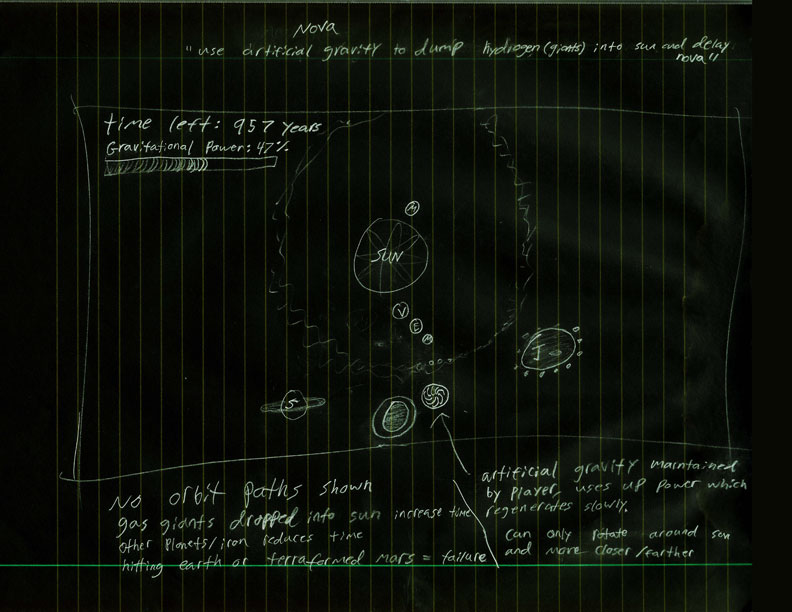 Nova
"use artificial gravity to dump hydrogen (giants) into sun and delay
nova"
time left: 957 years
Gravitational Power: 47%
M
SUN
V
E
M
J
S
artificial gravity maintained
by player, uses up power which
regenerates slowly.
can only rotate around sun
and move closer/farther
No orbit paths shown
gas giants dropped into sun increase time
other planets/iron reduces time
hitting earth or terraformed mars = failure